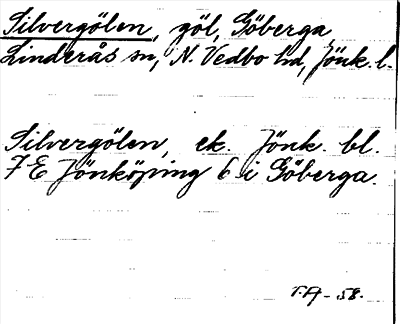 Silvergölen, göl, Göberga
Linderås sn, N. Vedbo hd, Jönk. l.
Silvergölen, ek. Jönk. bl.
7 E Jönköping 6 i Göberga.
T.A - 58.